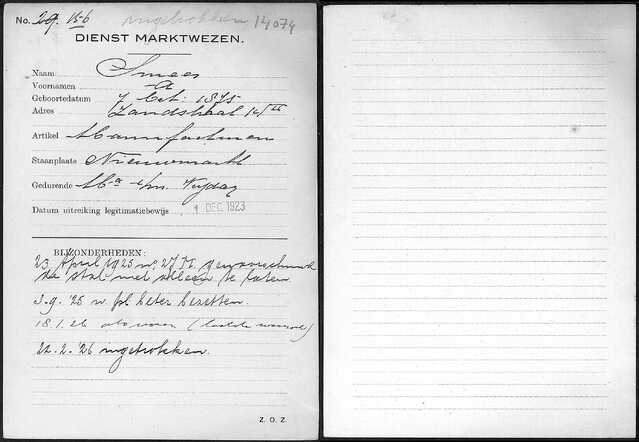 No. 29. 156 ingetrokken 14074
DIENST MARKTWEZEN.
Naam Smees
Voornamen A
Geboortedatum 7 Oct. 1875
Adres Zandstraat 14 II
Artikel Manufacturen
Staanplaats Nieuwmarkt
Gedurende Ma t/m Vrijdag
Datum uitreiking legitimatiebewijs 1 DEC 1923
BIJZONDERHEDEN:
23 April 1925 no. 27 gewaarschuwd
de stal niet alleen te laten
3.9.'25 w. pl. beter bezetten.
18.1.26 als voren (laatste waarsch)
22.2.'26 ingetrokken.
Z. O. Z.